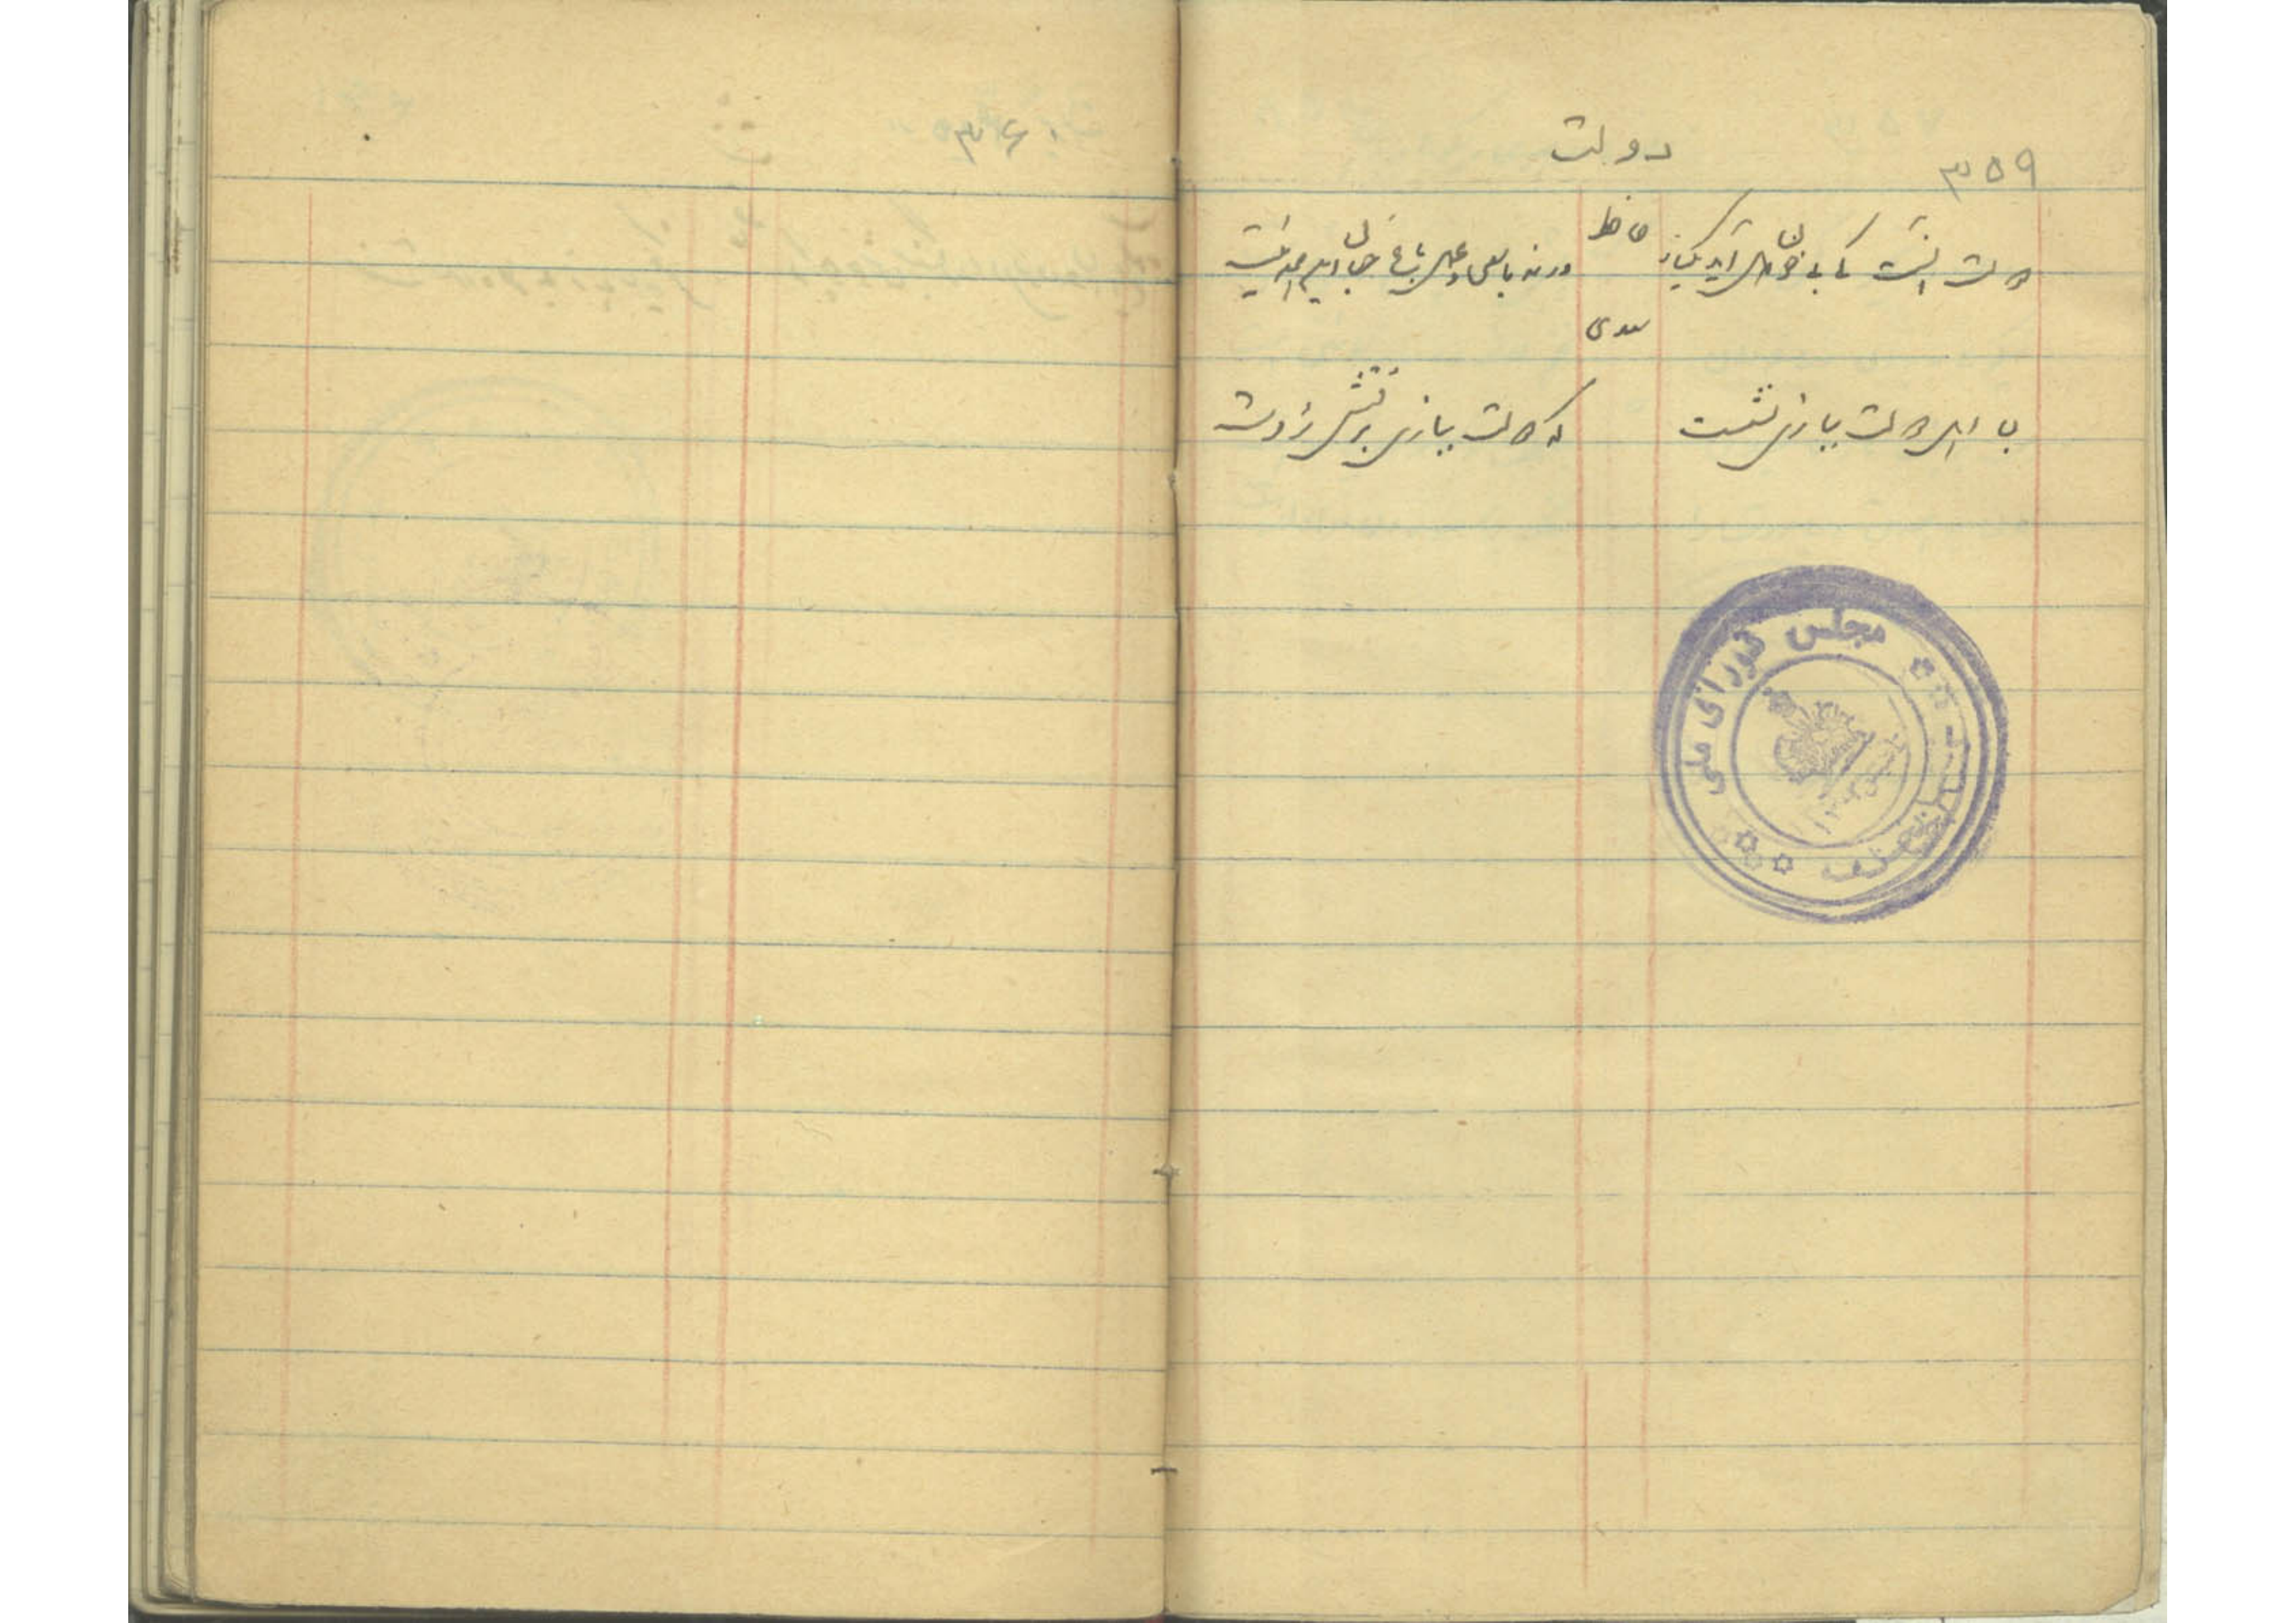 ۳۵۹
دولت
حافظ
دولت آنست که بی خون دل آید بکنار
ورنه با سعی و عمل باغ جنان اینهمه نیست
سعدی
با اهل دولت ببازی نشست
که دولت ببازی برفتش ز دست
مجلس شورای ملی
۳۶۰